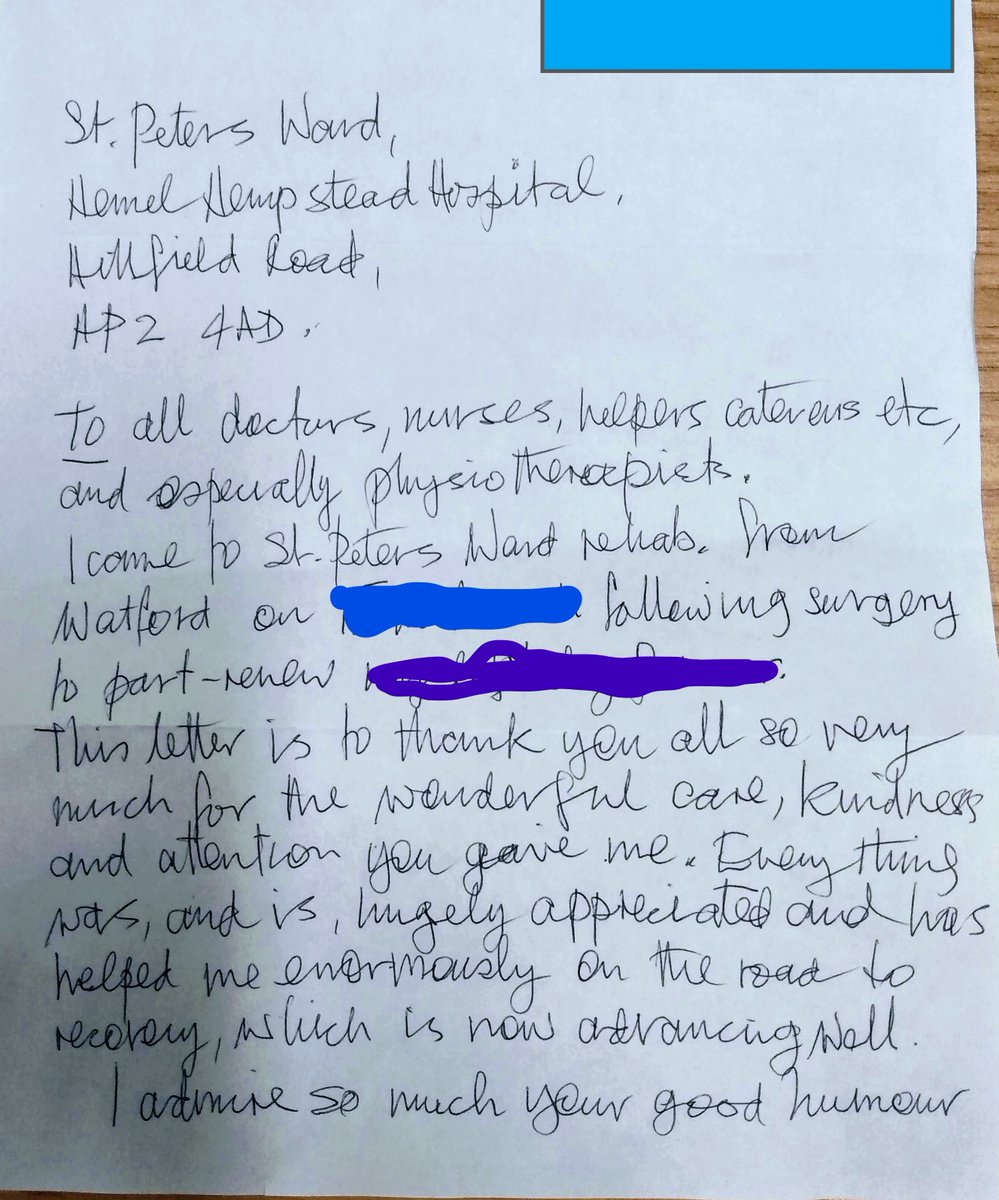 St. Peters Ward,
Hemel Hempstead Hospital,
Hillfield Road,
HP2 4AD.
To all doctors, nurses, helpers caterers etc,
and especially physiotherapists.
I came to St. Peters Ward rehab. from
Watford on following surgery
to part-renew
This letter is to thank you all so very
much for the wonderful care, kindness
and attention you gave me. Everything
was, and is, hugely appreciated and has
helped me enormously on the road to
recovery, which is now advancing well.
I admire so much your good humour